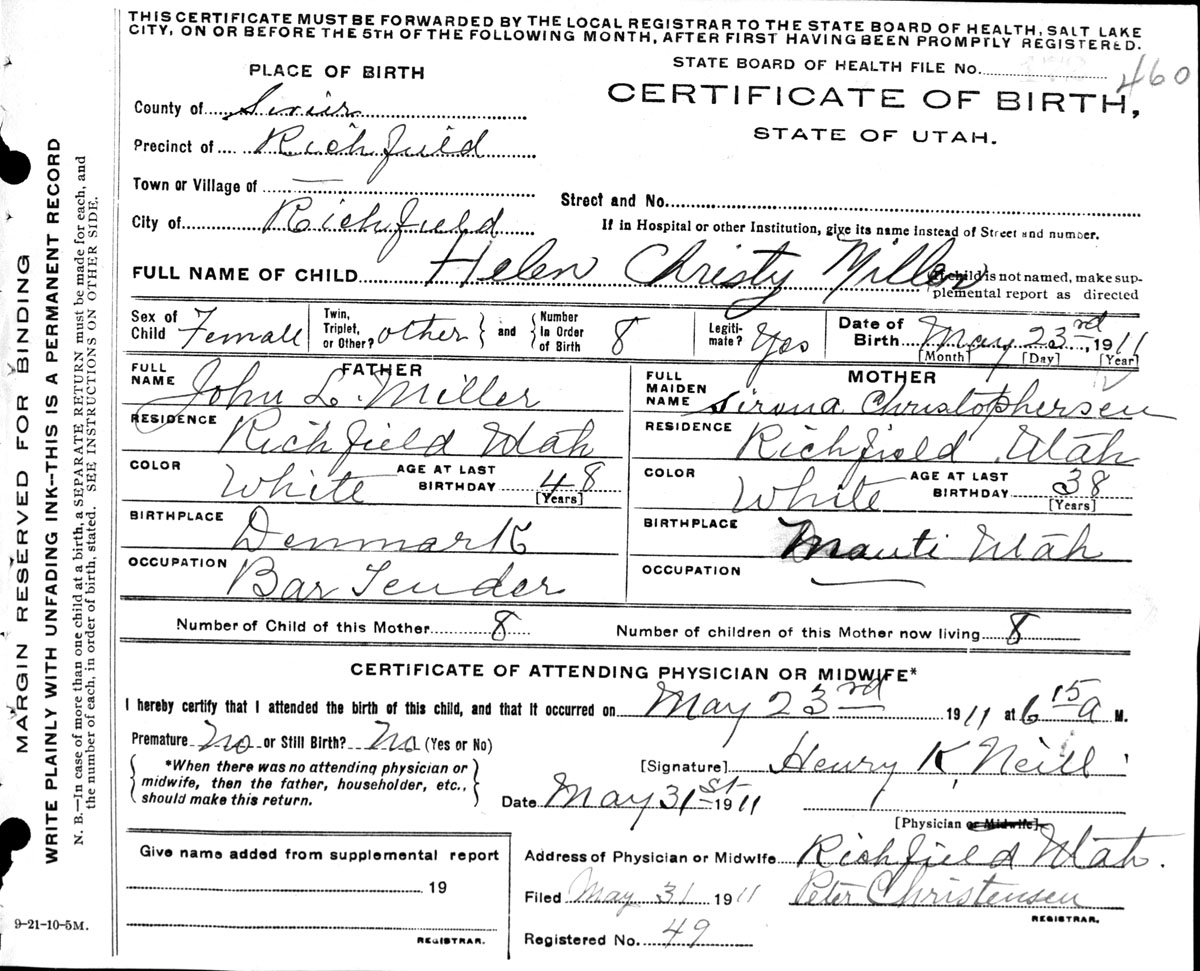 THIS CERTIFICATE MUST BE FORWARDED BY THE LOCAL REGISTRAR TO THE STATE BOARD OF HEALTH, SALT LAKE
CITY, ON OR BEFORE THE 5TH OF THE FOLLOWING MONTH, AFTER FIRST HAVING BEEN PROMPTLY REGISTERED.
STATE BOARD OF HEALTH FILE No. 460
PLACE OF BIRTH
CERTIFICATE OF BIRTH,
STATE OF UTAH.
County of Sevier
Precinct of Richfield
Town or Village of —
Street and No.
City of Richfield
If in Hospital or other Institution, give its name instead of Street and number.
FULL NAME OF CHILD Helen Christy Miller
If child is not named, make sup-
plemental report as directed
Sex of Child Female
Twin, Triplet, or Other? other } and { Number In Order of Birth 8
Legiti- mate? Yes
Date of Birth May 23rd, 1911
[Month] [Day] [Year]
FATHER
FULL NAME John L. Miller
RESIDENCE Richfield Utah
COLOR White AGE AT LAST BIRTHDAY 48
[Years]
BIRTHPLACE Denmark
OCCUPATION Bar Tender
MOTHER
FULL MAIDEN NAME Sirena Christophersen
RESIDENCE Richfield Utah
COLOR White AGE AT LAST BIRTHDAY 38
[Years]
BIRTHPLACE Manti Utah
OCCUPATION —
Number of Child of this Mother 8 Number of children of this Mother now living 8
CERTIFICATE OF ATTENDING PHYSICIAN OR MIDWIFE*
I hereby certify that I attended the birth of this child, and that it occurred on May 23rd 1911 at 6 15 a M.
Premature No or Still Birth? No (Yes or No)
*When there was no attending physician or
midwife, then the father, householder, etc.,
should make this return.
[Signature] Henry K. Neill
Date May 31st 1911
[Physician or Midwife]
Give name added from supplemental report
19
REGISTRAR.
Address of Physician or Midwife Richfield Utah.
Filed May 31 1911 Peter Christensen
REGISTRAR.
Registered No. 49
9-21-10-5M.
MARGIN RESERVED FOR BINDING
WRITE PLAINLY WITH UNFADING INK--THIS IS A PERMANENT RECORD
N. B.—In case of more than one child at a birth, a SEPARATE RETURN must be made for each, and
the number of each, in order of birth, stated. SEE INSTRUCTIONS ON OTHER SIDE.